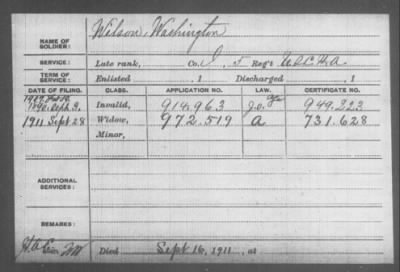 NAME OF SOLDIER: Wilson, Washington
SERVICE: Late rank, Co. I, 5 Reg't U.S.C.H.A.
TERM OF SERVICE: Enlisted , 1 Discharged , 1
DATE OF FILING. CLASS. APPLICATION NO. LAW. CERTIFICATE NO.
1890 Sept 3, Invalid, 914.963 949.323
1911 Sept 28 Widow, 972.519 A 731.628
Minor,
ADDITIONAL SERVICES:
REMARKS:
Died Sept 16, 1911, at